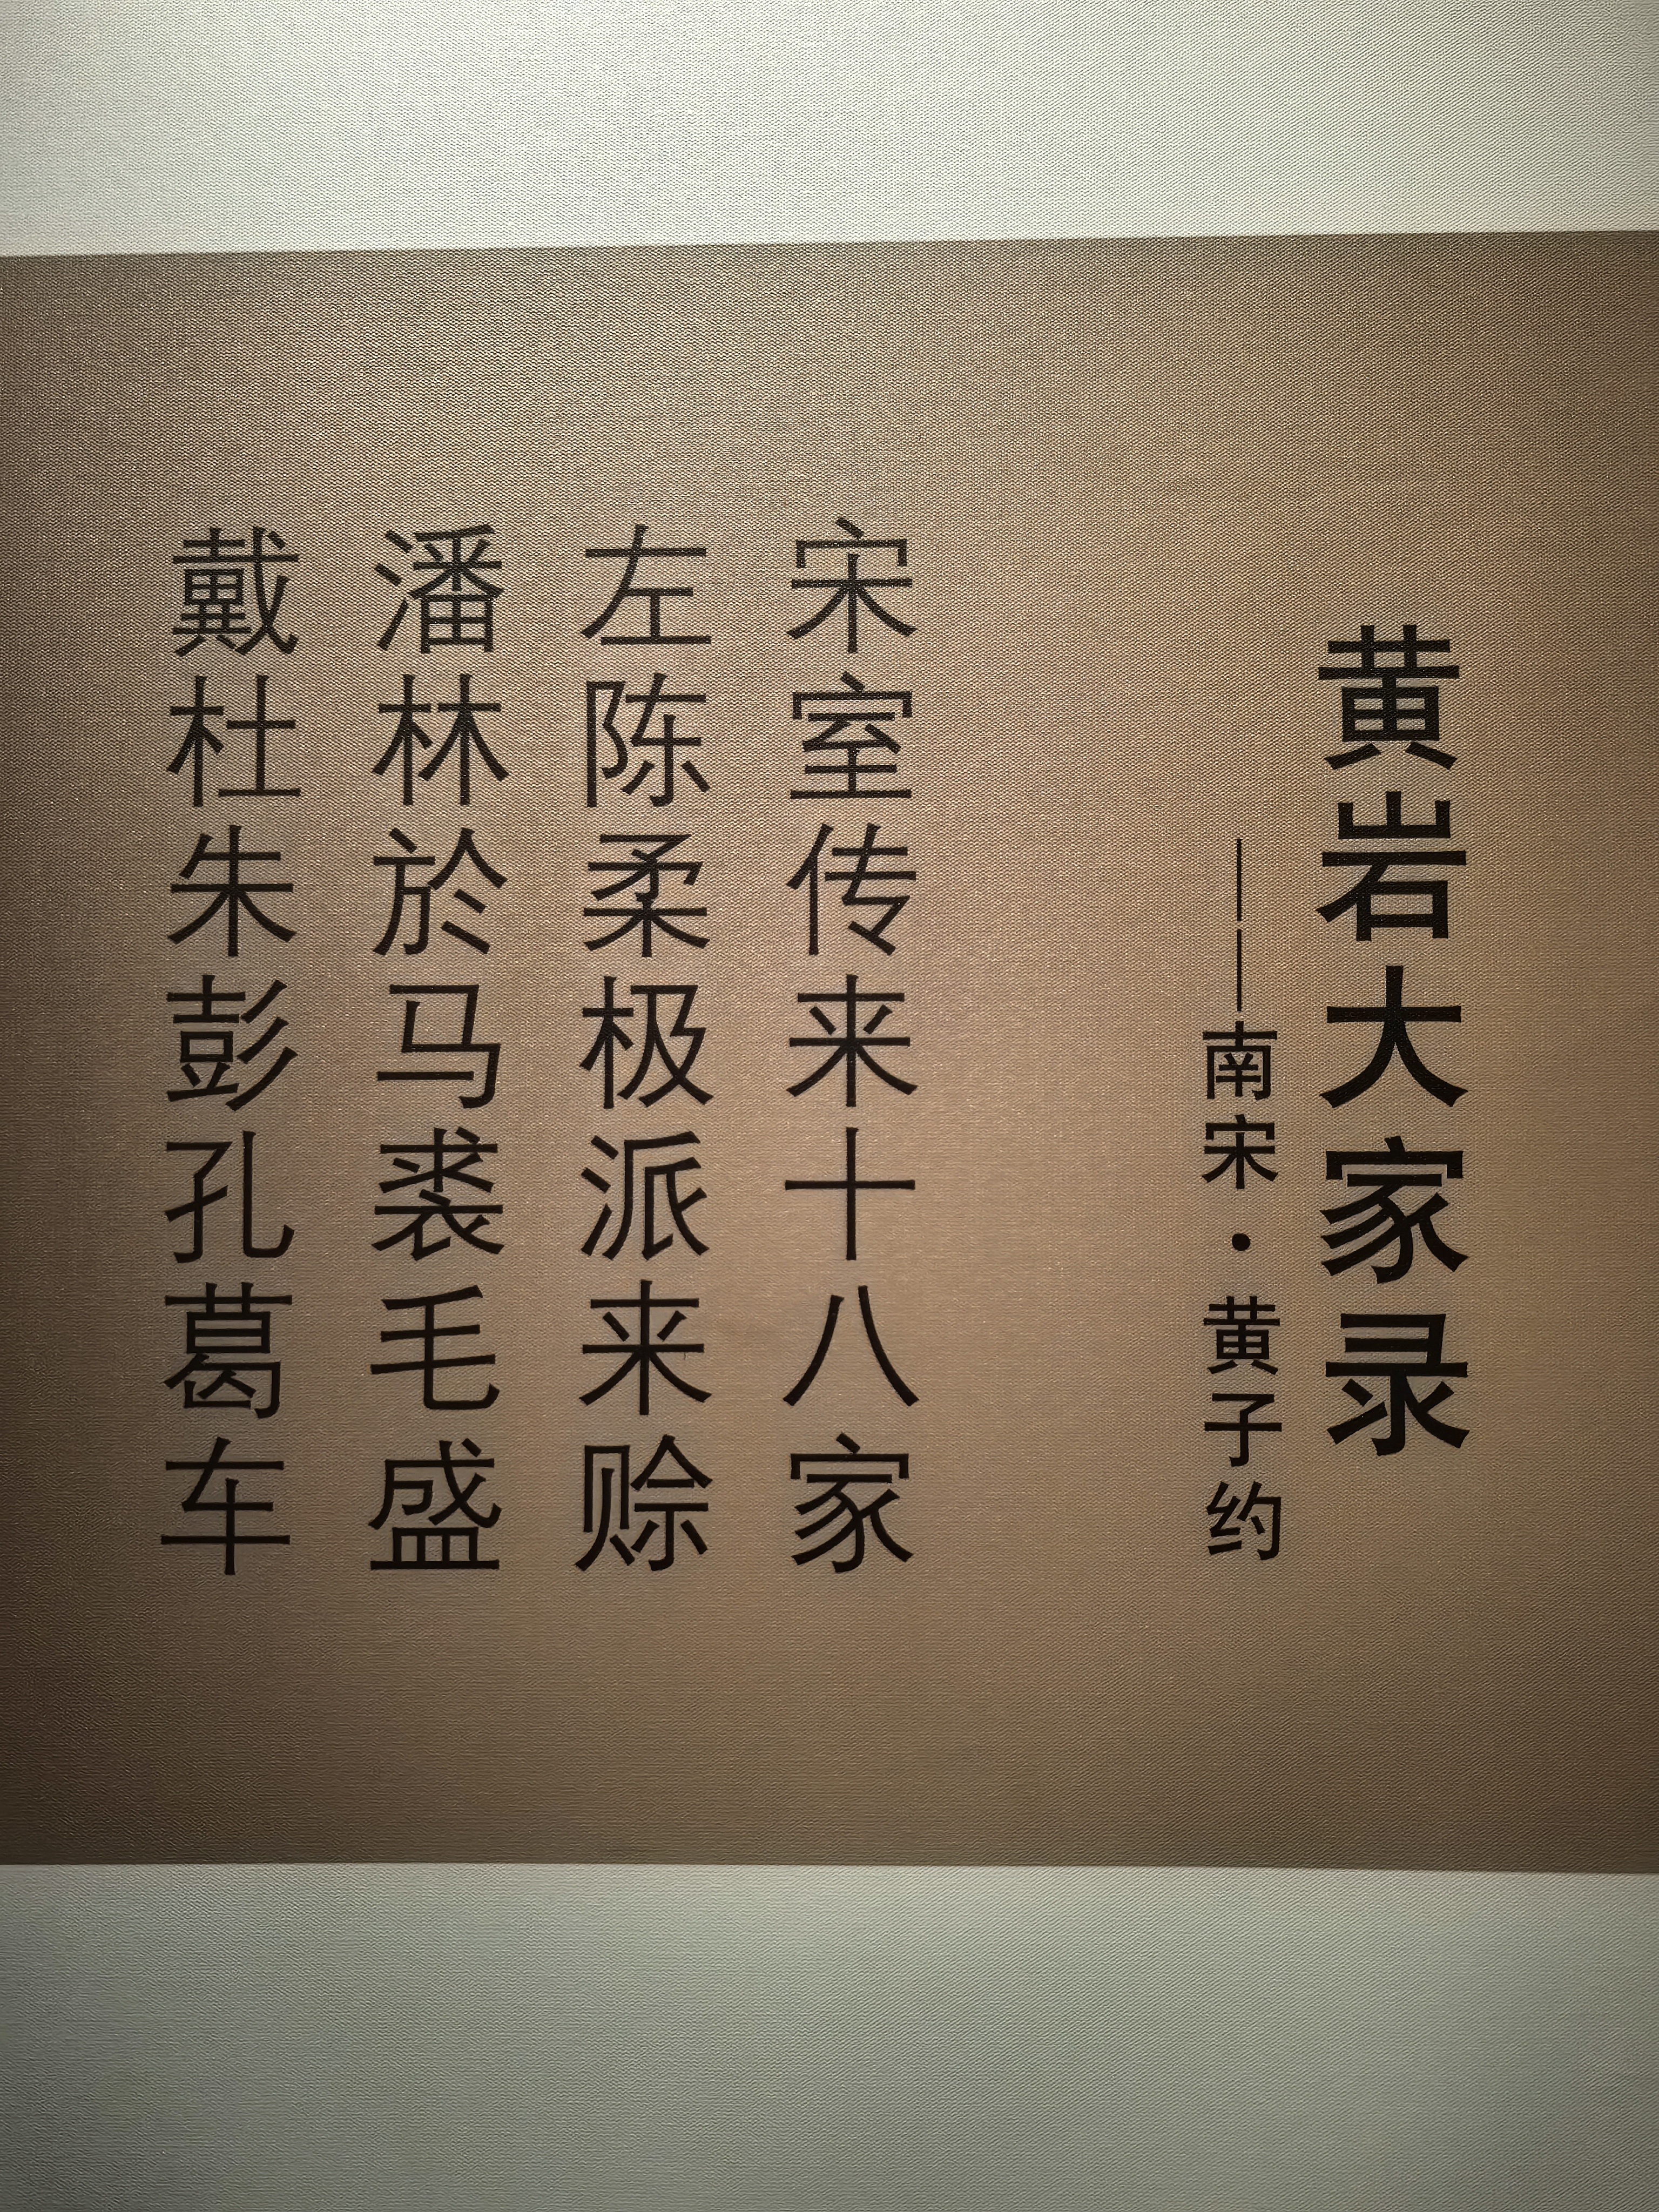 黄岩大家录
——南宋·黄子约
宋室传来十八家
左陈柔极派来赊
潘林於马裘毛盛
戴杜朱彭孔葛车